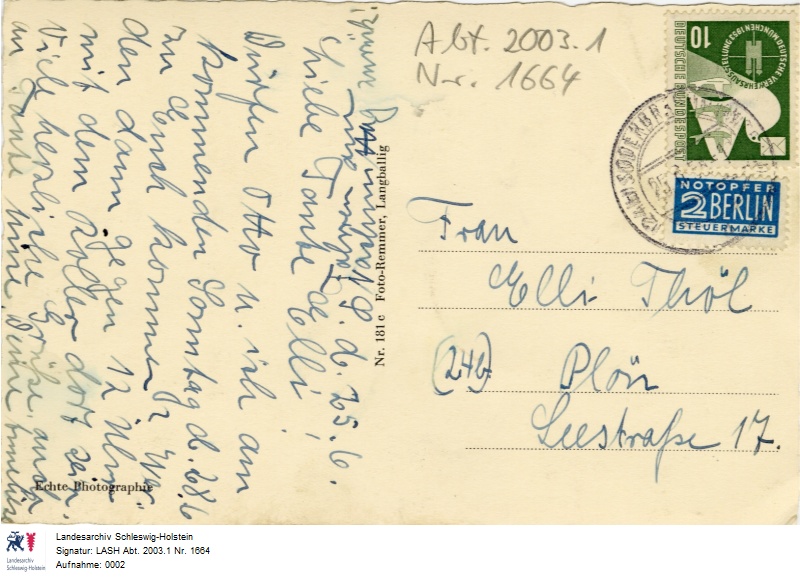 Süderbrarup d. 25.6.
Liebe Tante Elli!
Dürfen Otto u. ich am
kommenden Sonntag d. 28.6
zu Euch kommen? Wir
den dann gegen 12 Uhr
mit dem Roller dort sein.
Viele herzliche Grüße, auch
an Tante Mimi, Deine
Nr. 181 c Foto-Remmer, Langballig
Echte Photographie
Abt. 2003.1
Nr. 1664
10
DEUTSCHE BUNDESPOST
DEUTSCHE VERKEHRSAUSSTELLUNG 1953 MÜNCHEN
(24b) SÜDERBRARUP
NOTOPFER
2 BERLIN
STEUERMARKE
Frau
Elli Thöl
(24b) Plön
Seestraße 17.
Landesarchiv
Schleswig-Holstein
Landesarchiv Schleswig-Holstein
Signatur: LASH Abt. 2003.1 Nr. 1664
Aufnahme: 0002